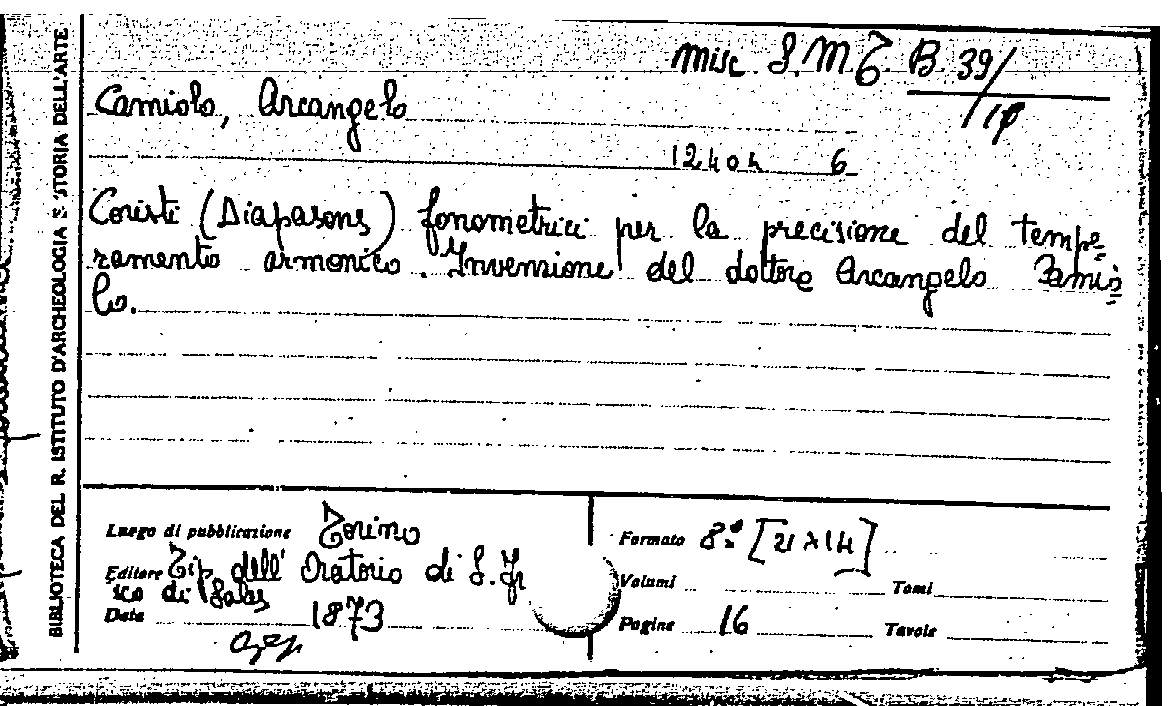 BIBLIOTECA DEL R. ISTITUTO D'ARCHEOLOGIA E STORIA DELL'ARTE
Misc S.M.T. B. 39/
Camiolo, Arcangelo
12404 6
Coristi (Diapasons) fonometrici per la precisione del tempe=
ramento armonico. Invenzione del dottore Arcangelo Camio=
lo.
Luogo di pubblicazione Torino
Editore Tip. dell' Oratorio di S. Fr
sco di Sales
Data 1873
Formato 8.° [21 x 14]
Volumi Tomi
Pagine 16 Tavole